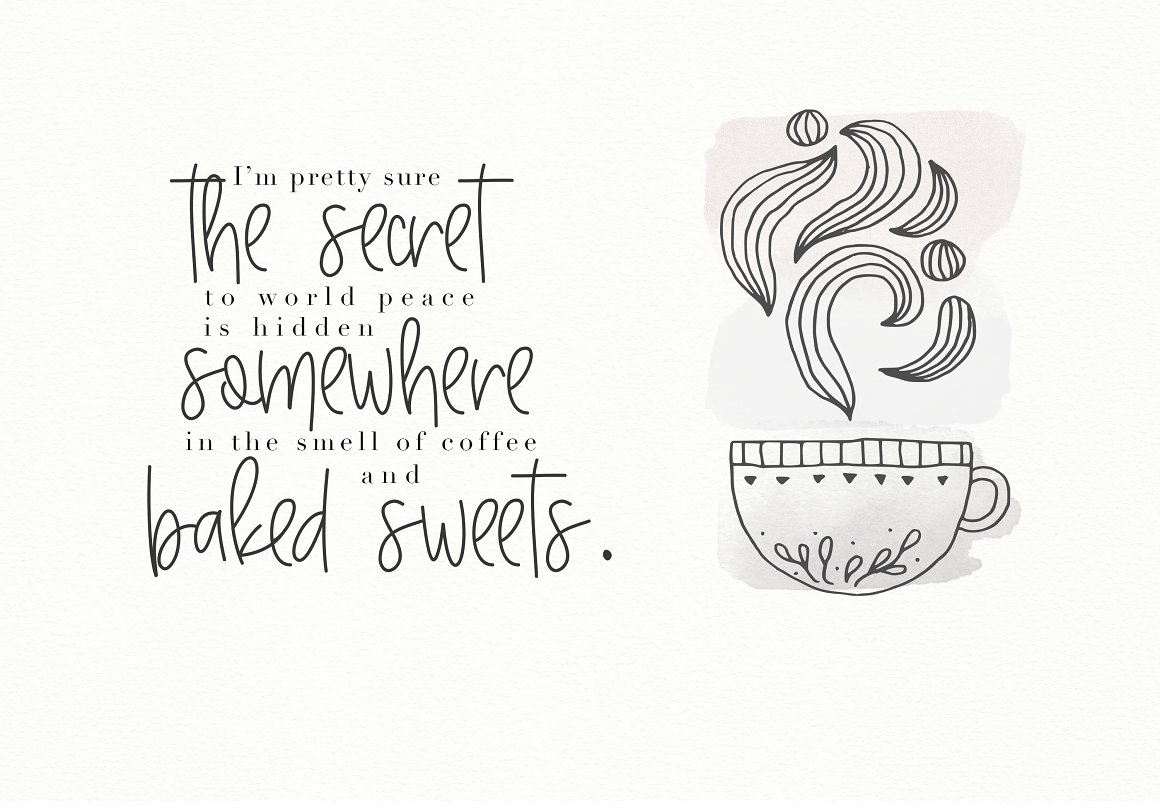 I'm pretty sure
the secret
to world peace
is hidden
somewhere
in the smell of coffee
and
baked sweets.